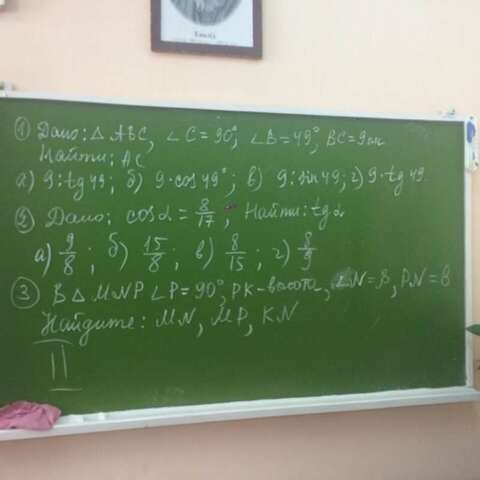 ① Дано: △ ABC, ∠C = 90°, ∠B = 49°, BC = 9см
Найти: AC
а) 9:tg 49; б) 9·cos 49°; в) 9:sin 49; г) 9·tg 49
② Дано: cos α = 8/17, Найти: tg α
а) 9/8; б) 15/8; в) 8/15; г) 8/9
③ В △ MNP ∠P = 90°, PK - высота, ∠N = β, PN = 8
Найдите: MN, MP, KN
II